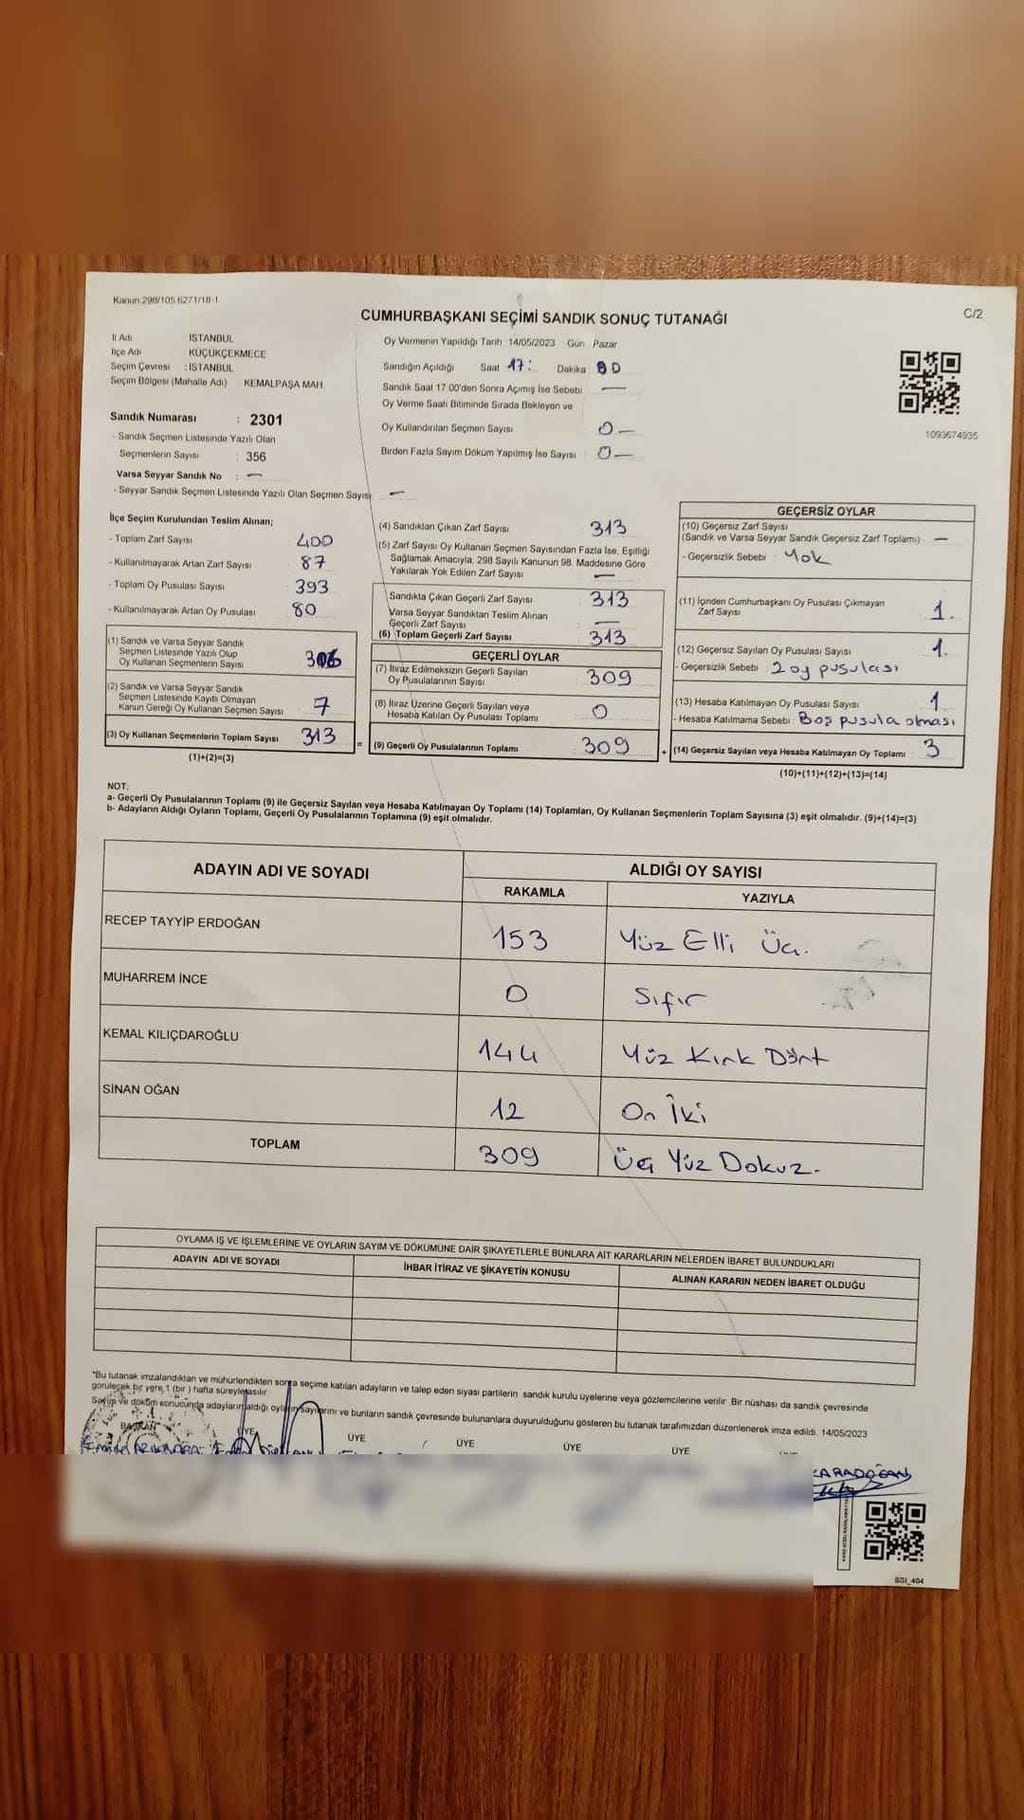 Kanun:298/105,6271/18-1
CUMHURBAŞKANI SEÇİMİ SANDIK SONUÇ TUTANAĞI
C/2
İl Adı İSTANBUL
İlçe Adı KÜÇÜKÇEKMECE
Seçim Çevresi : İSTANBUL
Seçim Bölgesi (Mahalle Adı) KEMALPAŞA MAH
Oy Vermenin Yapıldığı Tarih 14/05/2023 Gün Pazar
Sandığın Açıldığı Saat 17: Dakika
Sandık Saat 17 00'den Sonra Açılmış İse Sebebi —
Oy Verme Saati Bitiminde Sırada Bekleyen ve
Oy Kullandırılan Seçmen Sayısı 0 —
Birden Fazla Sayım Döküm Yapılmış İse Sayısı 0 —
1093674935
Sandık Numarası : 2301
- Sandık Seçmen Listesinde Yazılı Olan
Seçmenlerin Sayısı : 356
Varsa Seyyar Sandık No : —
- Seyyar Sandık Seçmen Listesinde Yazılı Olan Seçmen Sayısı —
İlçe Seçim Kurulundan Teslim Alınan;
- Toplam Zarf Sayısı 400
- Kullanılmayarak Artan Zarf Sayısı 87
- Toplam Oy Pusulası Sayısı 393
- Kullanılmayarak Artan Oy Pusulası 80
(1) Sandık ve Varsa Seyyar Sandık
Seçmen Listesinde Yazılı Olup
Oy Kullanan Seçmenlerin Sayısı 306
(2) Sandık ve Varsa Seyyar Sandık
Seçmen Listesinde Kayıtlı Olmayan
Kanun Gereği Oy Kullanan Seçmen Sayısı 7
(3) Oy Kullanan Seçmenlerin Toplam Sayısı 313
(1)+(2)=(3)
(4) Sandıktan Çıkan Zarf Sayısı 313
(5) Zarf Sayısı Oy Kullanan Seçmen Sayısından Fazla İse, Eşitliği
Sağlamak Amacıyla, 298 Sayılı Kanunun 98. Maddesine Göre
Yakılarak Yok Edilen Zarf Sayısı —
Sandıkta Çıkan Geçerli Zarf Sayısı 313
Varsa Seyyar Sandıktan Teslim Alınan
Geçerli Zarf Sayısı —
(6) Toplam Geçerli Zarf Sayısı 313
GEÇERLİ OYLAR
(7) İtiraz Edilmeksizin Geçerli Sayılan
Oy Pusulalarının Sayısı 309
(8) İtiraz Üzerine Geçerli Sayılan veya
Hesaba Katılan Oy Pusulası Toplamı 0
= (9) Geçerli Oy Pusulalarının Toplamı 309 +
GEÇERSİZ OYLAR
(10) Geçersiz Zarf Sayısı
(Sandık ve Varsa Seyyar Sandık Geçersiz Zarf Toplamı) —
- Geçersizlik Sebebi : Yok
(11) İçinden Cumhurbaşkanı Oy Pusulası Çıkmayan
Zarf Sayısı 1.
(12) Geçersiz Sayılan Oy Pusulası Sayısı 1.
- Geçersizlik Sebebi : 2 oy pusulası
(13) Hesaba Katılmayan Oy Pusulası Sayısı 1
- Hesaba Katılmama Sebebi : Boş pusula olması
(14) Geçersiz Sayılan veya Hesaba Katılmayan Oy Toplamı 3
(10)+(11)+(12)+(13)=(14)
NOT:
a- Geçerli Oy Pusulalarının Toplamı (9) ile Geçersiz Sayılan veya Hesaba Katılmayan Oy Toplamı (14) Toplamları, Oy Kullanan Seçmenlerin Toplam Sayısına (3) eşit olmalıdır. (9)+(14)=(3)
b- Adayların Aldığı Oyların Toplamı, Geçerli Oy Pusulalarının Toplamına (9) eşit olmalıdır.
ADAYIN ADI VE SOYADI ALDIĞI OY SAYISI
RAKAMLA YAZIYLA
RECEP TAYYİP ERDOĞAN 153 Yüz Elli Üç.
MUHARREM İNCE 0 Sıfır
KEMAL KILIÇDAROĞLU 144 Yüz Kırk Dört
SİNAN OĞAN 12 On İki
TOPLAM 309 Üç Yüz Dokuz.
OYLAMA İŞ VE İŞLEMLERİNE VE OYLARIN SAYIM VE DÖKÜMÜNE DAİR ŞİKAYETLERLE BUNLARA AİT KARARLARIN NELERDEN İBARET BULUNDUKLARI
ADAYIN ADI VE SOYADI İHBAR İTİRAZ VE ŞİKAYETİN KONUSU ALINAN KARARIN NEDEN İBARET OLDUĞU
*Bu tutanak imzalandıktan ve mühürlendikten sonra seçime katılan adayların ve talep eden siyasi partilerin sandık kurulu üyelerine veya gözlemcilerine verilir. Bir nüshası da sandık çevresinde
görülecek bir yere 1 (bir) hafta süreyle asılır.
Sayım ve döküm sonucunda adayların aldığı oyların sayılarını ve bunların sandık çevresinde bulunanlara duyurulduğunu gösteren bu tutanak tarafımızdan düzenlenerek imza edildi. 14/05/2023
BAŞKAN ÜYE ÜYE ÜYE ÜYE ÜYE
KARADOĞAN
SSI_404